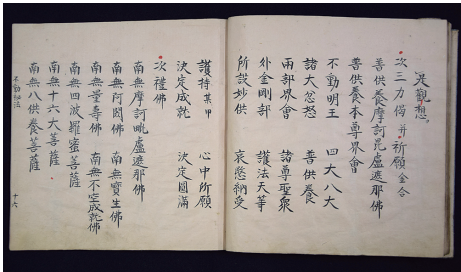 觀想。
次三力偈 并祈願 金合
善供養摩訶毘盧遮那佛
善供養本尊界會
不動明王 四大八大
諸大忿怒 善供養
兩部界會 諸尊聖衆
外金剛部 護法天等
所設妙供 哀愍納受
護持某甲 心中所願
決定成就 決定圓滿
次禮佛
南無摩訶毗盧遮那佛
南無阿閦佛 南無寶生佛
南無量壽佛 南無不空成就佛
南無四波羅蜜菩薩
南無十六大菩薩
南無八供養菩薩
不動秘法 十六